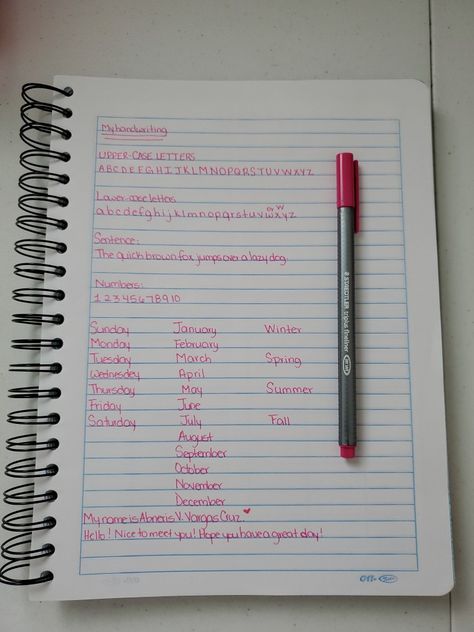 My handwriting
UPPER-CASE LETTERS
A B C D E F G H I J K L M N O P Q R S T U V W X Y Z
Lower-case letters
or W
a b c d e f g h i j k l m n o p q r s t u v w x y z
Sentence:
The quick brown fox jumps over a lazy dog.
Numbers:
1 2 3 4 5 6 7 8 9 10
Sunday January Winter
Monday February
Tuesday March Spring
Wednesday April
Thursday May Summer
Friday June
Saturday July Fall
August
September
October
November
December
My name is Abneris V. Vargas Cruz.
Hello! Nice to meet you! Hope you have a great day!
STAEDTLER triplus fineliner